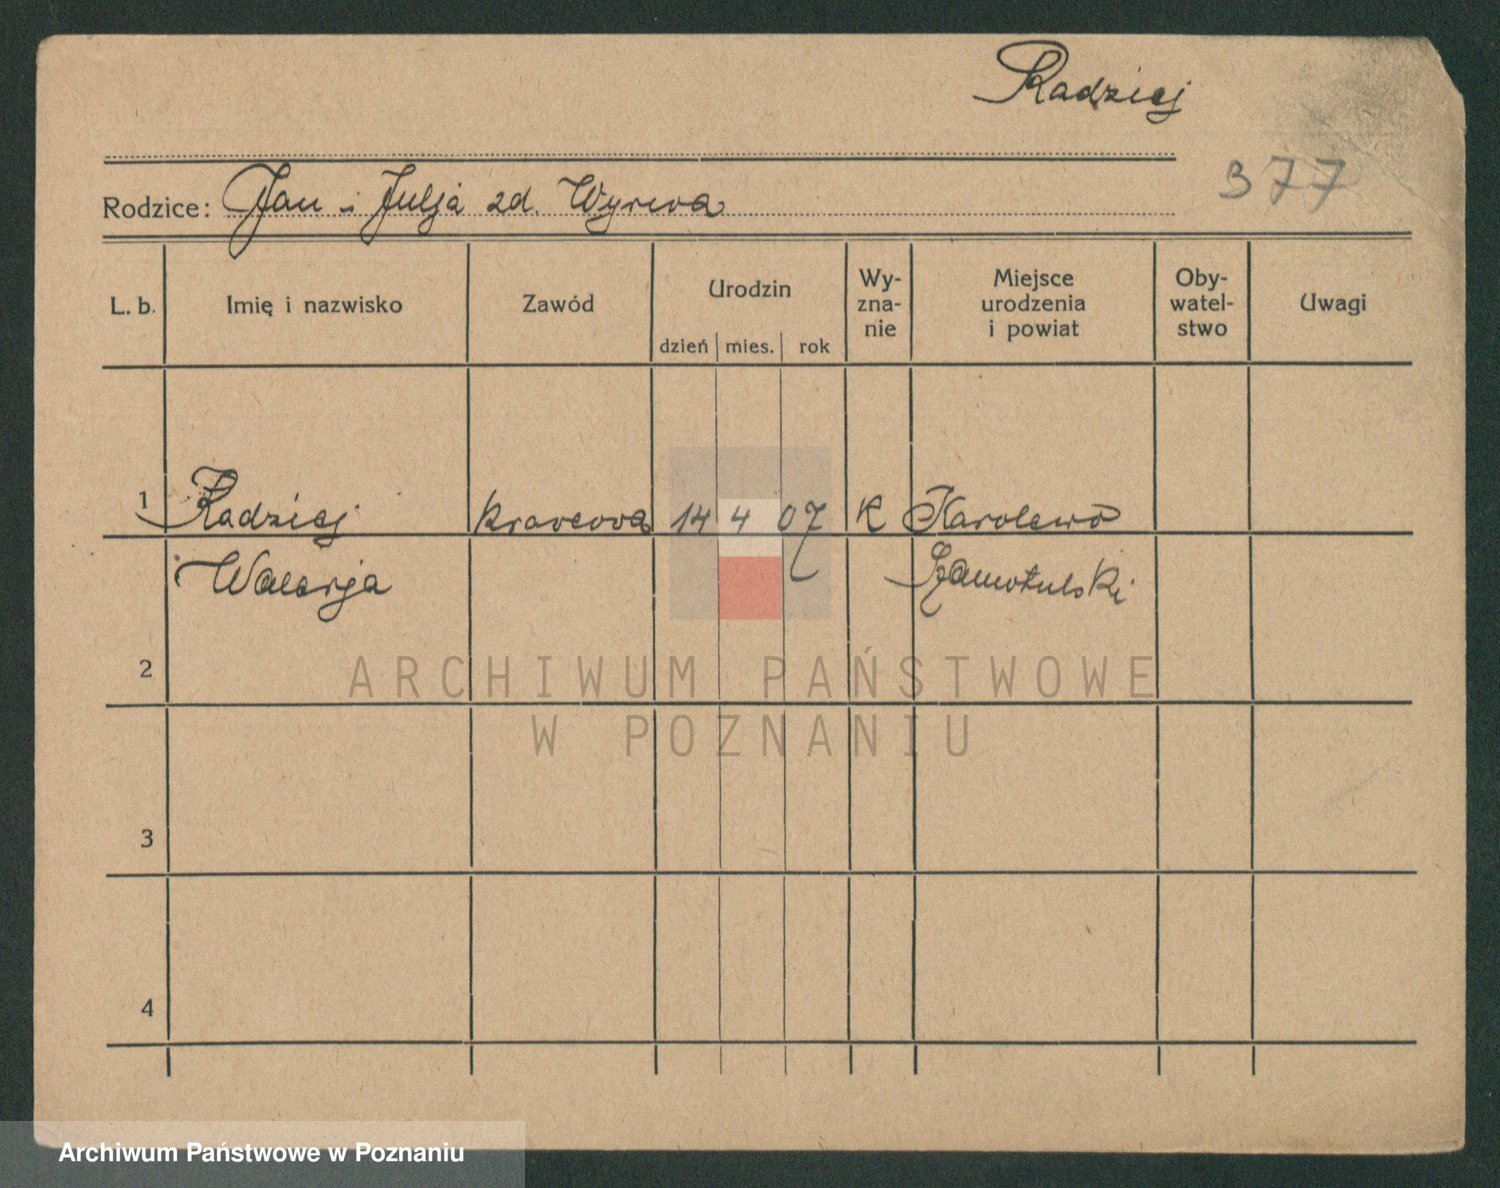 Radziej
377
Rodzice: Jan i Julja zd. Wyrwa
L. b. Imię i nazwisko Zawód Urodzin Wy-zna-nie Miejsce urodzenia i powiat Oby-watel-stwo Uwagi
dzień mies. rok
1 Radziej krawcowa 14 4 07 K Karolewo
Walerja Szamotulski
2
ARCHIWUM PAŃSTWOWE
W POZNANIU
3
4
Archiwum Państwowe w Poznaniu